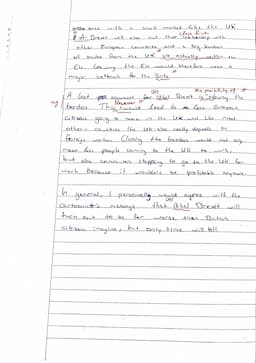 once with a small market like the UK.
A Brexit will also cut their relationship with
close knit
other European countries and a big number
of trades from the UK are actually within the
EU. Leaving the EU would therefore mean a
major setback for the Brits.
A last argument for Brexit is closing the
the possibility of
borders. This would lead to less European
However
citizens going to move in the UK and like most
other countries the UK also really depends on
foreign workers. Closing the borders would not only
mean less people coming to the UK to work,
but also companies stopping to go to the UK for
work because it wouldn't be profitable anymore.
In general, I personally would agree with the
cartoonist's message that Brexit will
turn out to be far worse than British
citizens imagine, but only time will tell.